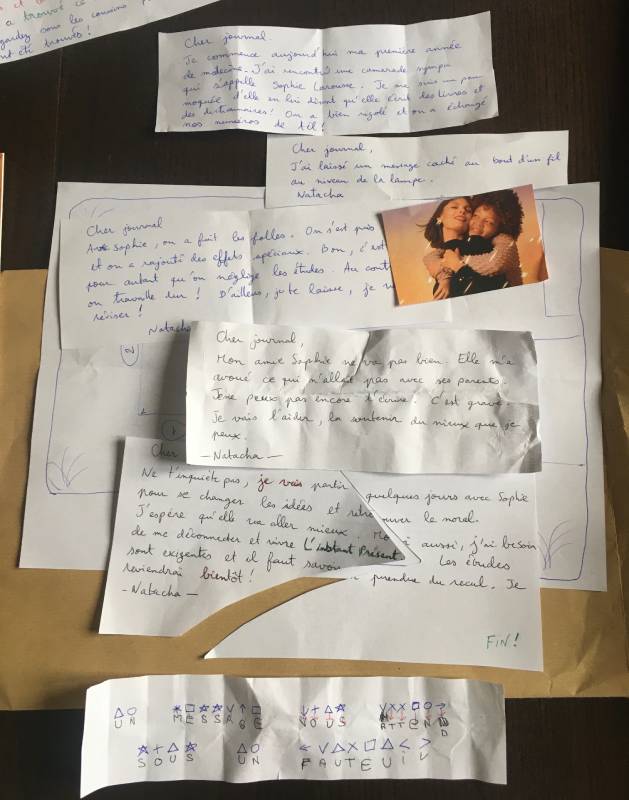 a trouvé ce
gardez sous les coussins
nt été trouvés !
Cher journal.
Je commence aujourd'hui ma première année
de médecine. J'ai rencontré une camarade sympa
qui s'appelle Sophie Larousse. Je me suis pas
moquée d'elle en lui disant qu'elle écrit des livres et
des dictionnaires ! On a bien rigolé et on a échangé
nos numéros de tél !
Cher journal,
J'ai laissé un message caché au bout d'un fil
au niveau de la lampe.
Natacha
Cher journal
Avec Sophie, on a fait les folles. On s'est pris
et on a rajouté des effets spéciaux. Bon, c'est
pour autant qu'on néglige les études. Au cont
on travaille dur ! D'ailleurs, je te laisse, je
réviser !
Natacha
Cher journal,
Mon amie Sophie ne va pas bien. Elle m'a
avoué ce qui n'allait pas avec ses parents.
Je ne peux pas encore l'écrire. C'est grave.
Je vais l'aider, la soutenir du mieux que je
peux.
- Natacha -
Cher
Ne t'inquiète pas, je vais partir quelques jours avec Sophie
pour se changer les idées et retrouver le moral.
J'espère qu'elle va aller mieux. Moi aussi, j'ai besoin
de me déconnecter et vivre L'instant Présent. Les études
sont exigentes et il faut savoir prendre du recul. Je
reviendrai bientôt !
- Natacha -
FIN !
UN MESSAGE NOUS ATTEND
SOUS UN FAUTEUIL